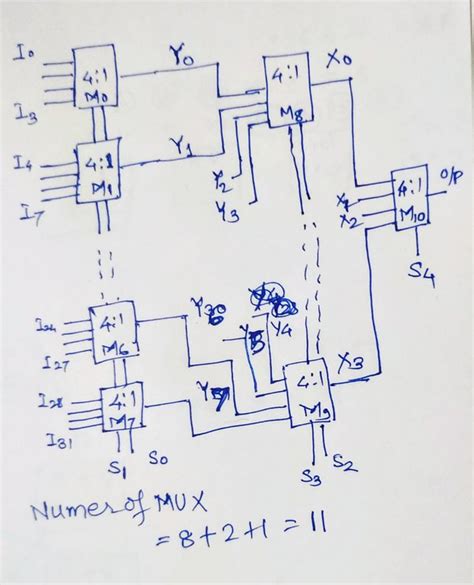 I0
4:1
M0
I3
Y0
4:1
M8
X0
I4
4:1
M1
I7
Y1
Y2
Y3
4:1
M10
X1
X2
O/P
S4
I24
4:1
M6
I27
Y6
Y5
Y4
I28
4:1
M7
I31
Y7
4:1
M9
X3
S1 S0
S3 S2
Numer of MUX
= 8+2+1 = 11